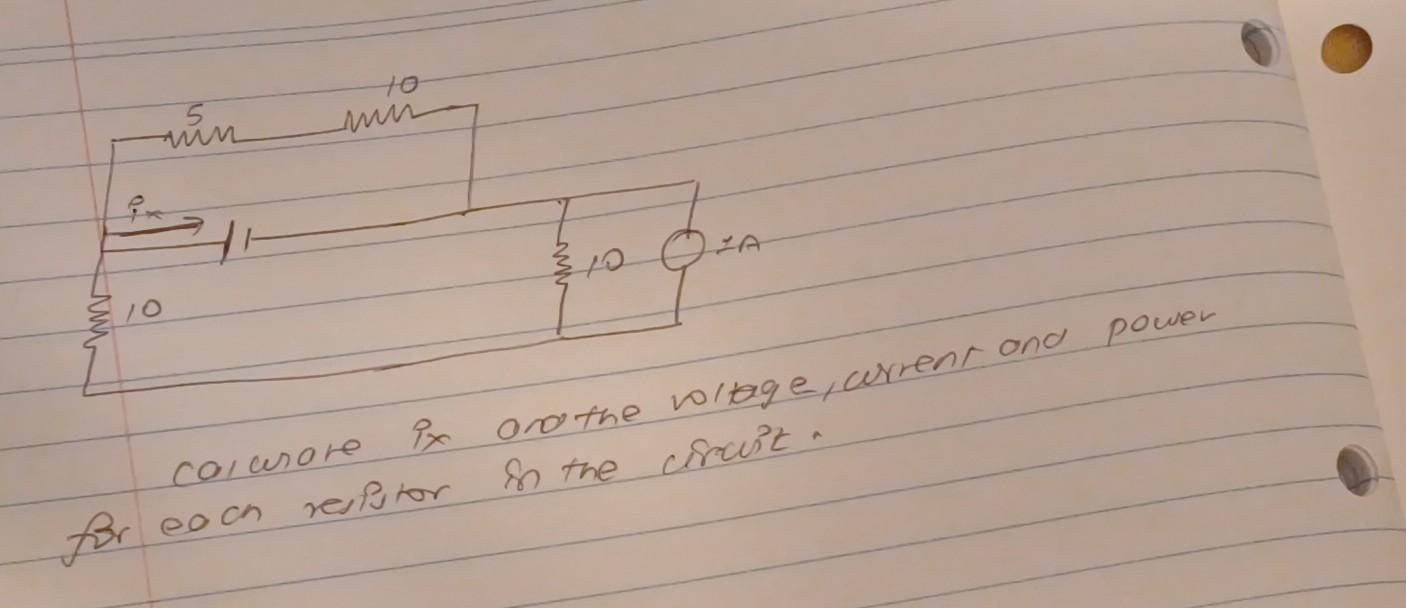 10
5
ix
10
10
1A
calculate ix and the voltage, current and power
for each resistor in the circuit.